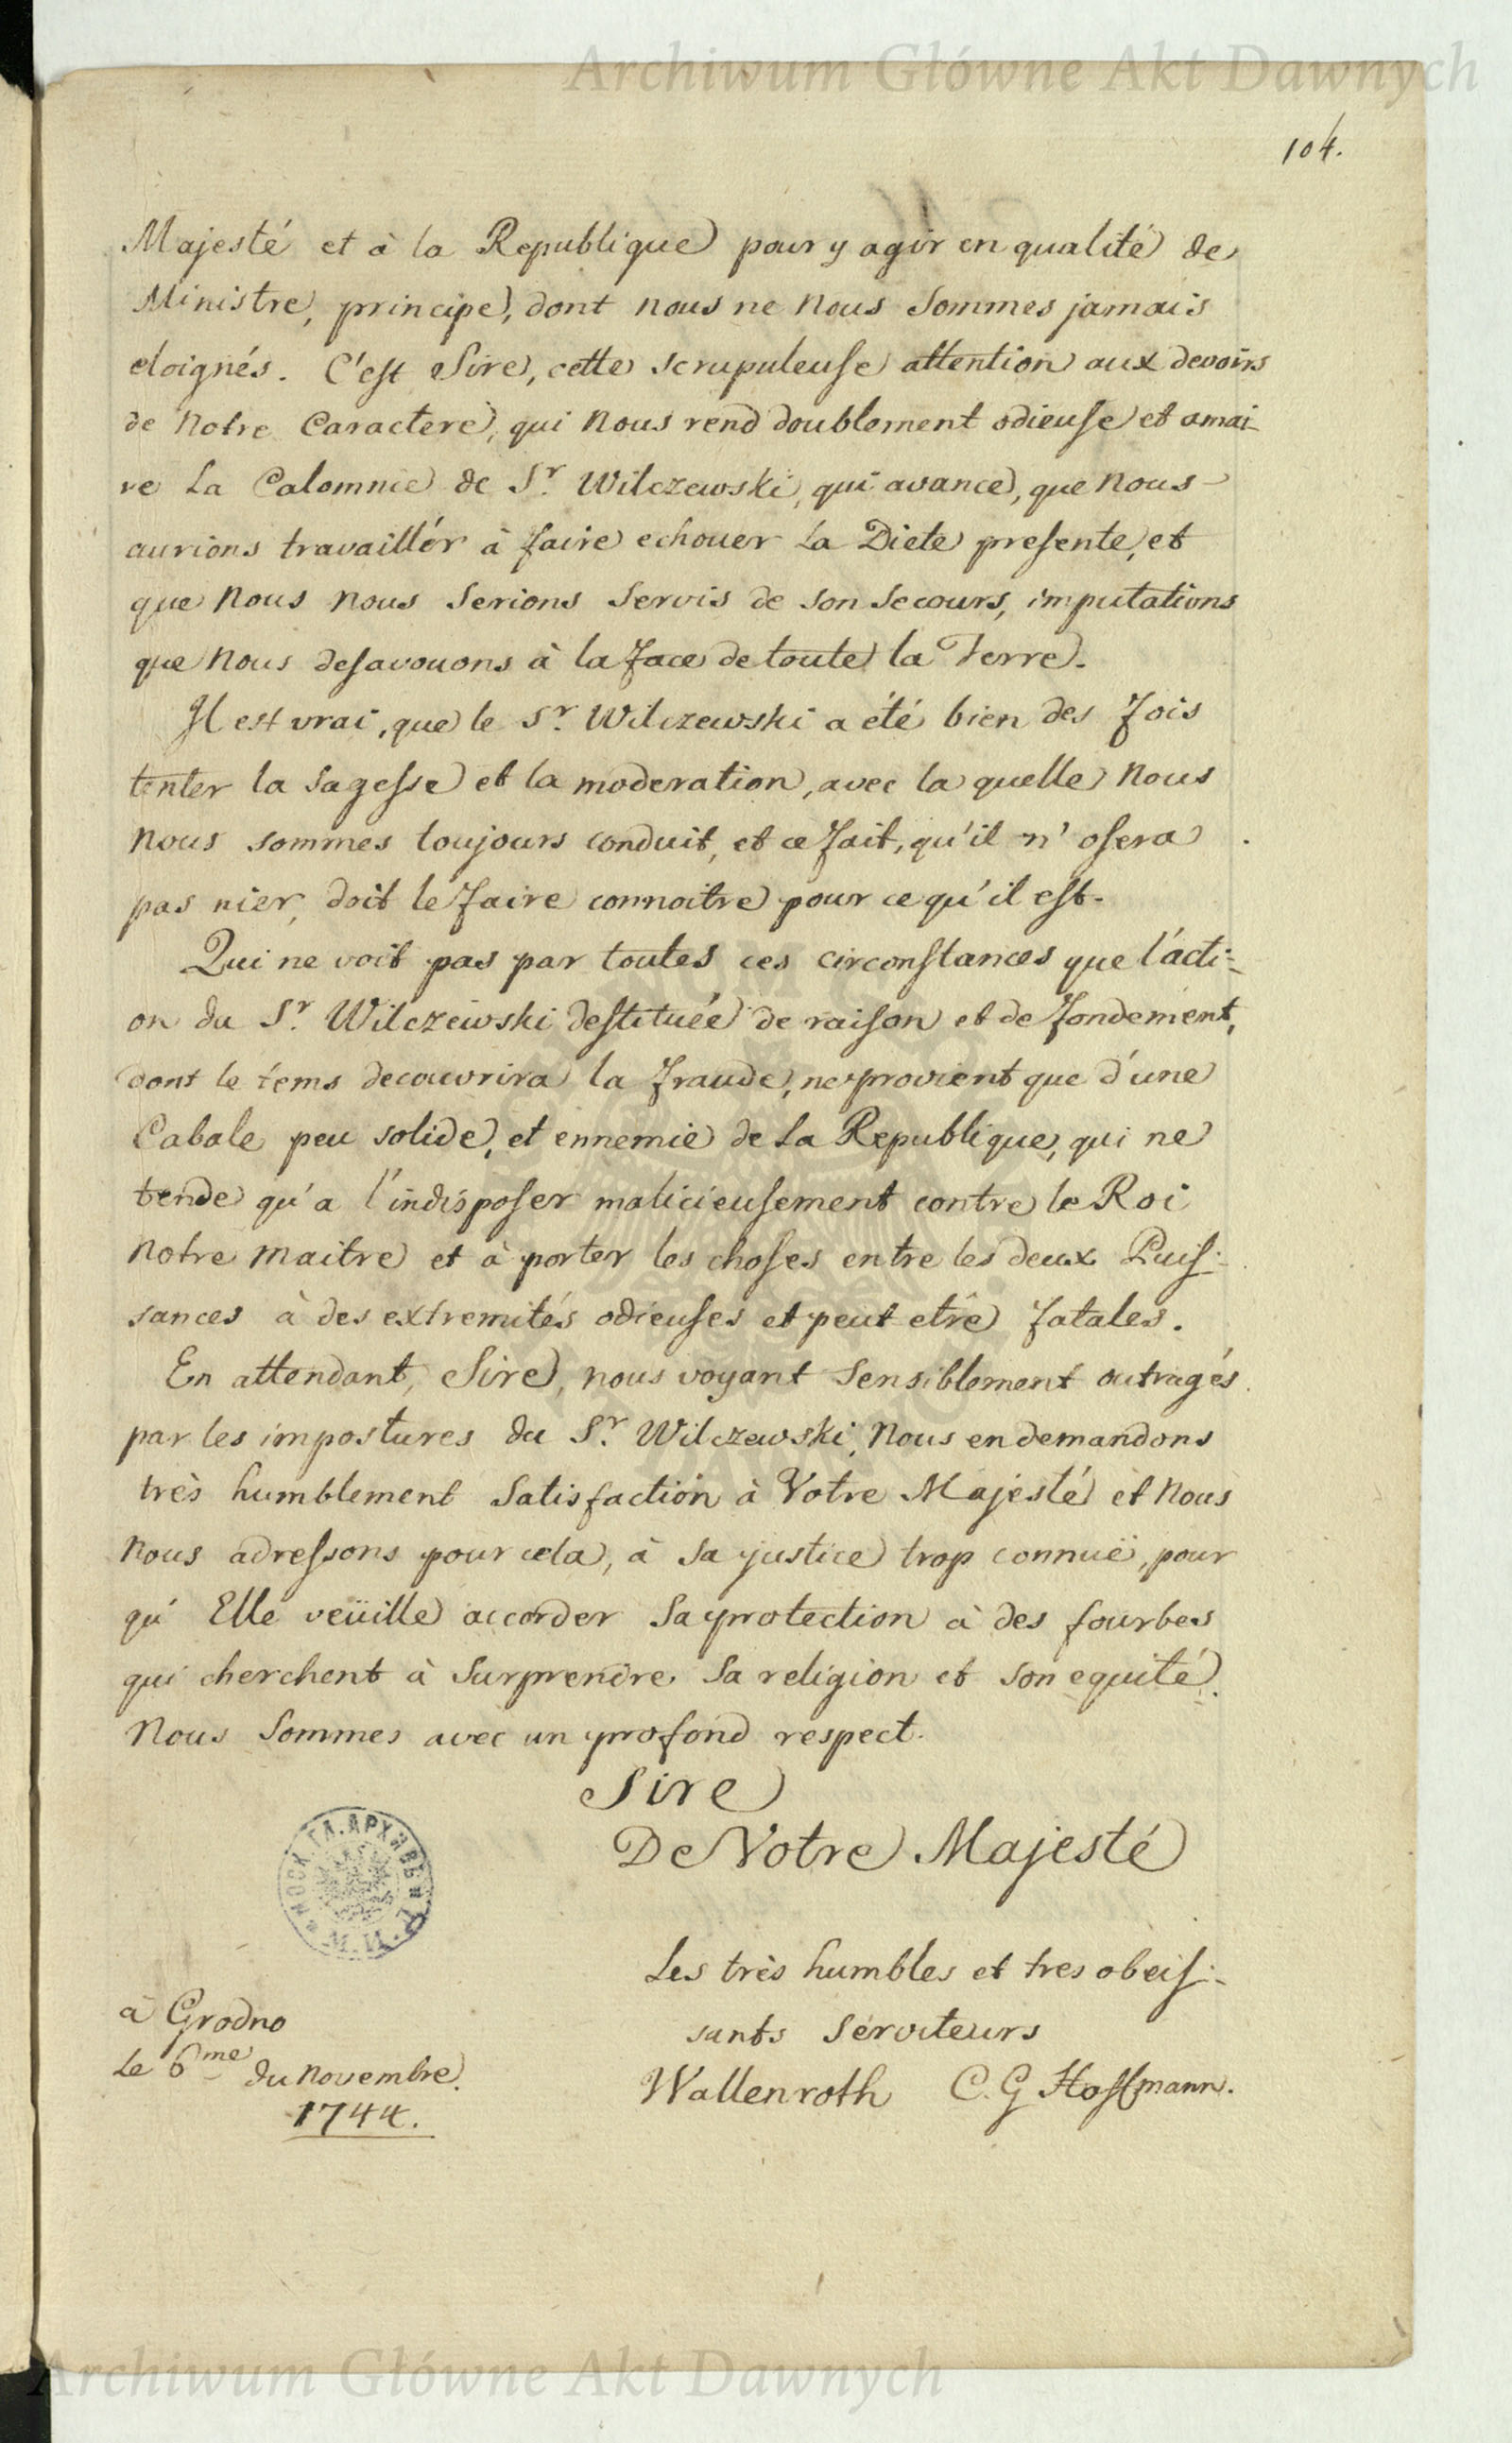 Archiwum Główne Akt Dawnych
104.
Majesté et à la Republique pour y agir en qualité de
Ministre, principe, dont nous ne nous sommes jamais
eloignés. C'est Sire, cette scrupuleuse attention aux devoirs
de Notre Caractere, qui Nous rend doublement odieuse et amai-
re La Calomnie de Sr. Wilczewski, qui avance, que Nous
aurions travaillér à faire echouer La Diete presente, et
que Nous nous serions servis de son secours, imputations
que Nous desavouons à la face de toute la Terre.
Il est vrai, que le Sr. Wilczewski a été bien des fois
tenter la sagesse et la moderation, avec la quelle Nous
Nous sommes toujours conduit, et ce fait, qu'il n' osera
pas nier, doit le faire connoitre pour ce qu'il est.
Qui ne voit pas par toutes ces circonstances que l'acti-
on du Sr. Wilczewski destituée de raison et de fondement,
dont le tems decouvrira la fraude, ne provient que d'une
Cabale peu solide, et ennemie de La Republique, qui ne
tende qu'a l'indisposer malicieusement contre le Roi
Notre Maitre et à porter les choses entre les deux Puis-
sances à des extremités odieuses et peut etre fatales.
En attendant, Sire, nous voyant sensiblement outragés
par les impostures du Sr. Wilczewski, Nous en demandons
très humblement satisfaction à Votre Majesté et Nous
Nous adressons pour cela, à sa justice trop connuë, pour
qu' Elle veüille accorder sa protection à des fourbes
qui cherchent à surprendre sa religion et son equité.
Nous sommes avec un profond respect.
Sire
De Votre Majesté
Les très humbles et tres obeis-
sants serviteurs
Wallenroth C. G Hoffmann.
à Grodno
Le 6me du Novembre.
1744.
МОСК. ГЛ. АРХИВЪ М. И. Д.
Archiwum Główne Akt Dawnych